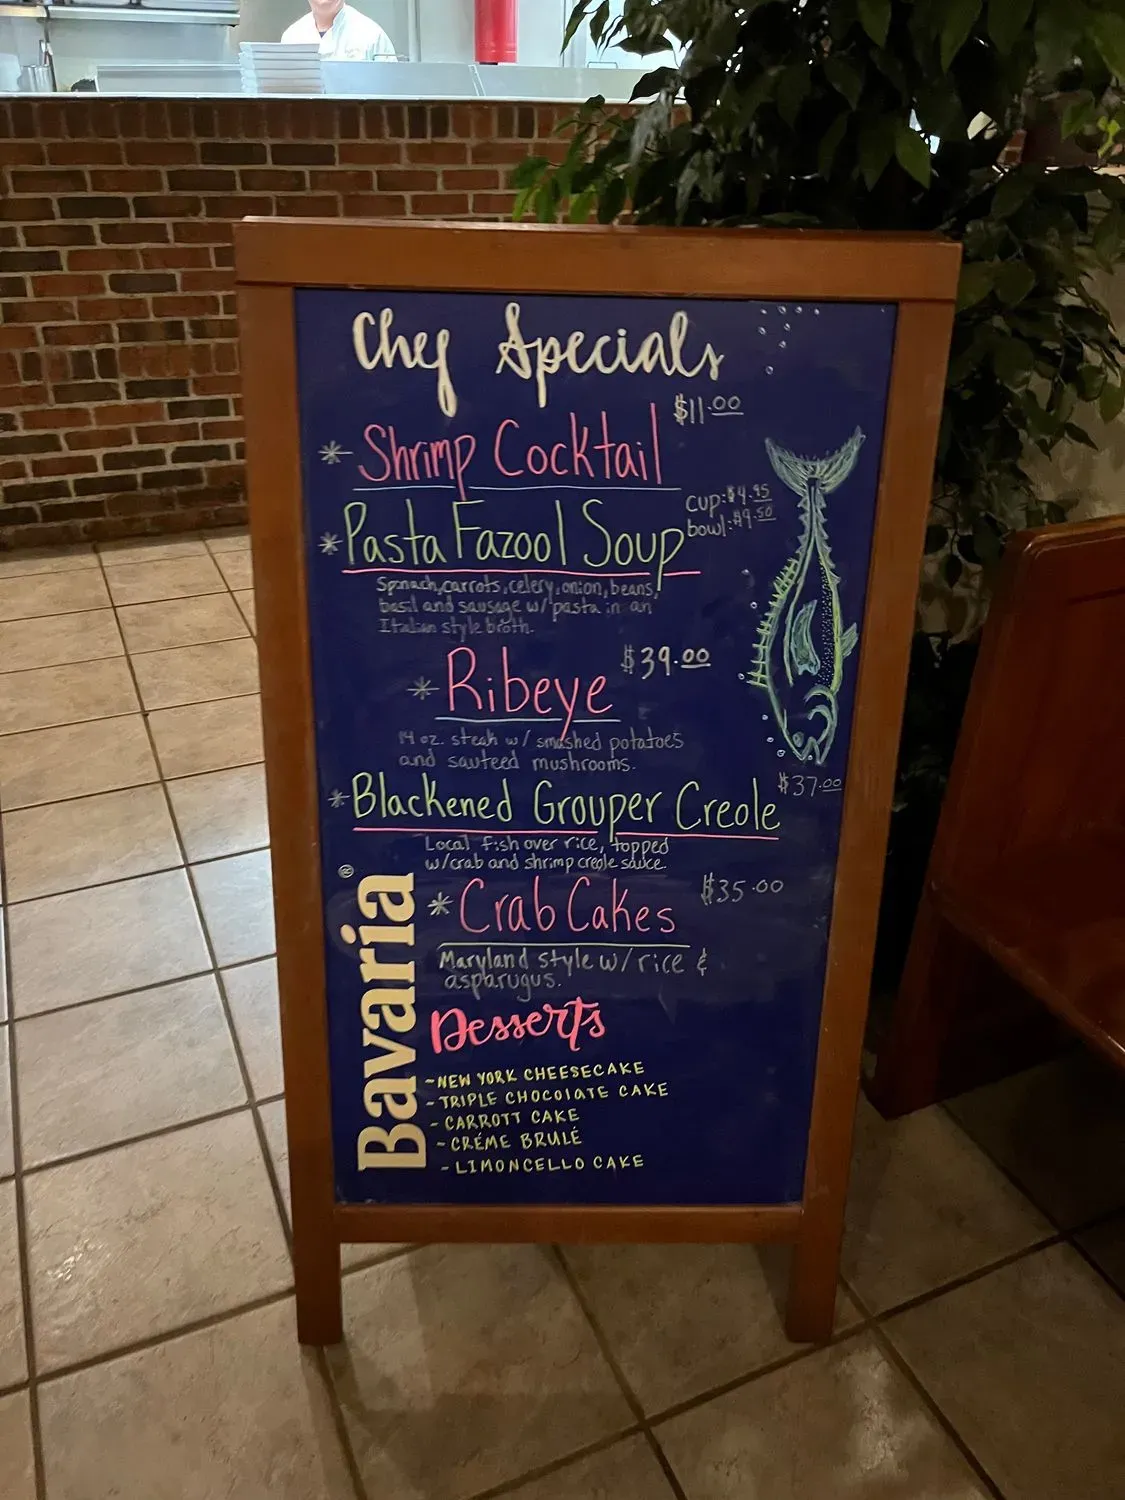 Chef Specials
$11.00
* Shrimp Cocktail
cup: $4.95
bowl: $9.50
* Pasta Fazool Soup
Spinach, carrots, celery, onion, beans,
basil and sausage w/ pasta in an
Italian style broth.
$39.00
* Ribeye
14 oz. steak w/ smashed potatoes
and sauteed mushrooms.
$37.00
* Blackened Grouper Creole
Local fish over rice, topped
w/crab and shrimp creole sauce.
$35.00
* Crab Cakes
Maryland style w/ rice &
asparugus.
Desserts
-NEW YORK CHEESECAKE
-TRIPLE CHOCOLATE CAKE
-CARROTT CAKE
-CRÉME BRULÉ
-LIMONCELLO CAKE
Bavaria®